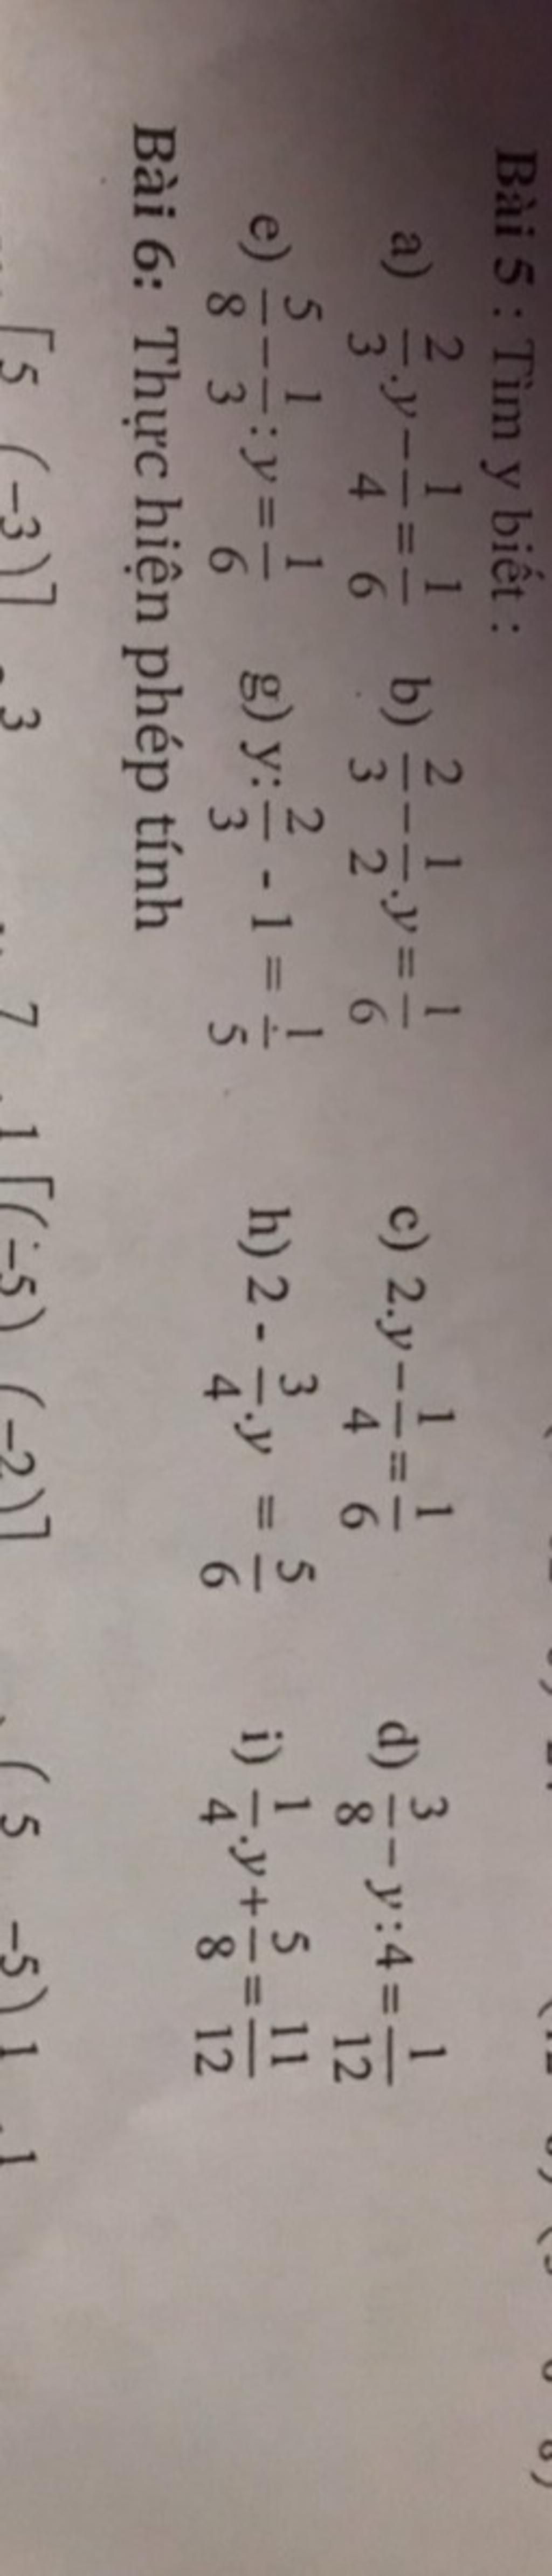 Bài 5 : Tìm y biết :
a) 2/3 . y − 1/4 = 1/6   b) 2/3 − 1/2 . y = 1/6   c) 2.y − 1/4 = 1/6   d) 3/8 − y : 4 = 1/12
e) 5/8 − 1/3 : y = 1/6   g) y : 2/3 - 1 = 1/5   h) 2 - 3/4 . y = 5/6   i) 1/4 . y + 5/8 = 11/12
Bài 6: Thực hiện phép tính